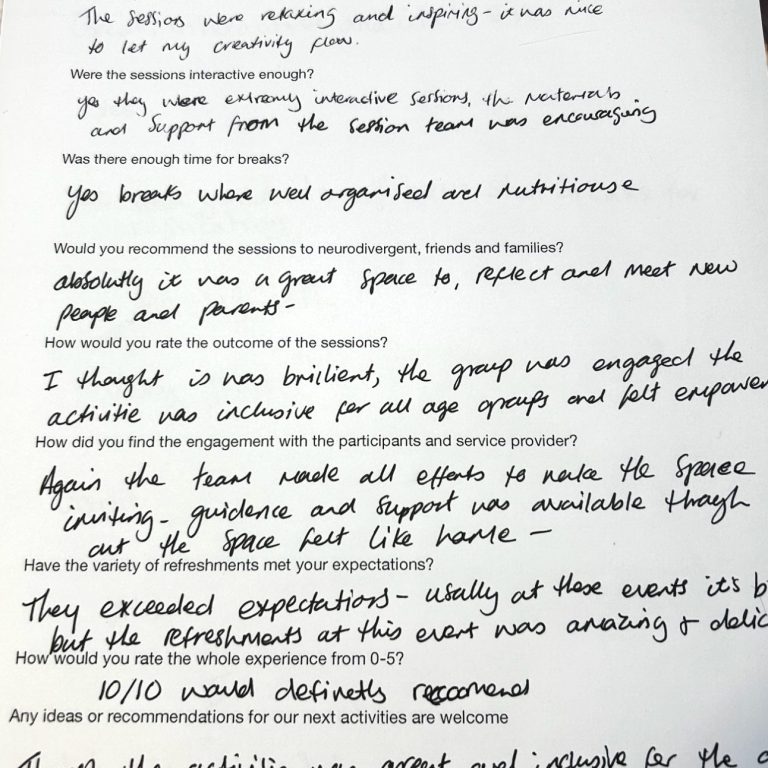 The sessions were relaxing and inspiring - it was nice
to let my creativity flow.
Were the sessions interactive enough?
yes they were extremly interactive sessions, the materials
and support from the session team was encouraging
Was there enough time for breaks?
Yes breaks where well organised and nutritiouse
Would you recommend the sessions to neurodivergent, friends and families?
absolutly it was a great space to, reflect and meet new
people and parents -
How would you rate the outcome of the sessions?
I thought is was brillient, the group was engaged the
activitie was inclusive for all age groups and felt empower
How did you find the engagement with the participants and service provider?
Again the team made all efforts to make the space
inviting - guidence and support was available through
out the space felt like home -
Have the variety of refreshments met your expectations?
They exceeded expectations - usally at these events it's b
but the refreshments at this event was amazing & delic
How would you rate the whole experience from 0-5?
10/10 would definetly reccomend
Any ideas or recommendations for our next activities are welcome
the great and inclusive for the